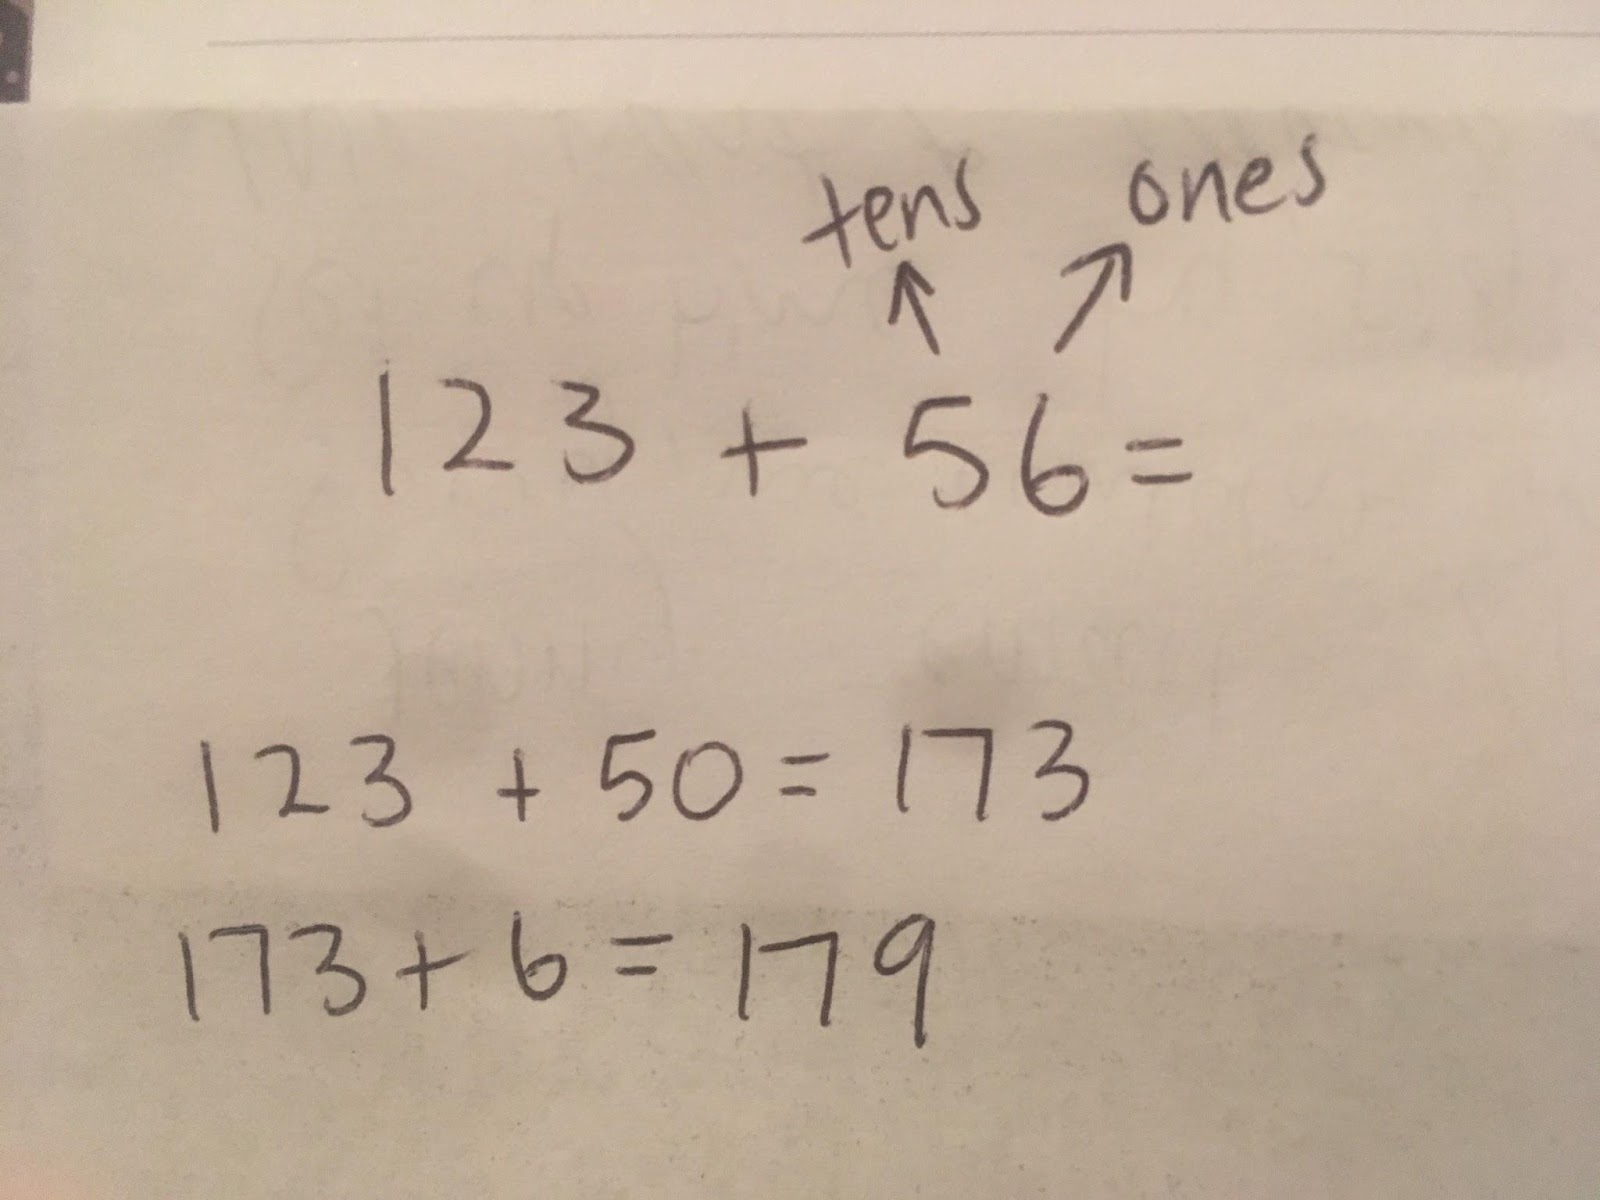 tens ones
123 + 56 =
123 + 50 = 173
173 + 6 = 179